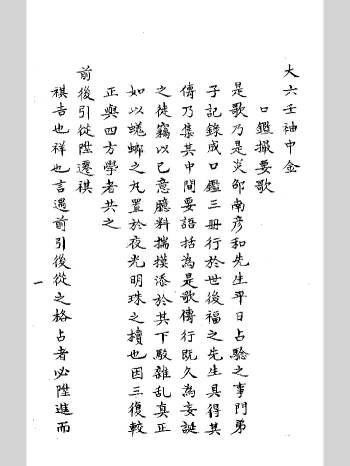 大六壬袖中金
口鑑撮要歌
是歌乃是炎邵南彦和先生平日占驗之事門弟
子記錄成口鑑三冊行於世後福之先生具得其
傳乃集其中間要語括為是歌傳行既久為妄誕
之徒竊以己意臆料揣摸添於其下駁雜乱真正
如以蜣蜋之丸置於夜光明珠之櫝也因三復較
正與四方學者共之
前後引從陞遷祺
祺吉也祥也言遇前引後從之格占者必陞進而
一